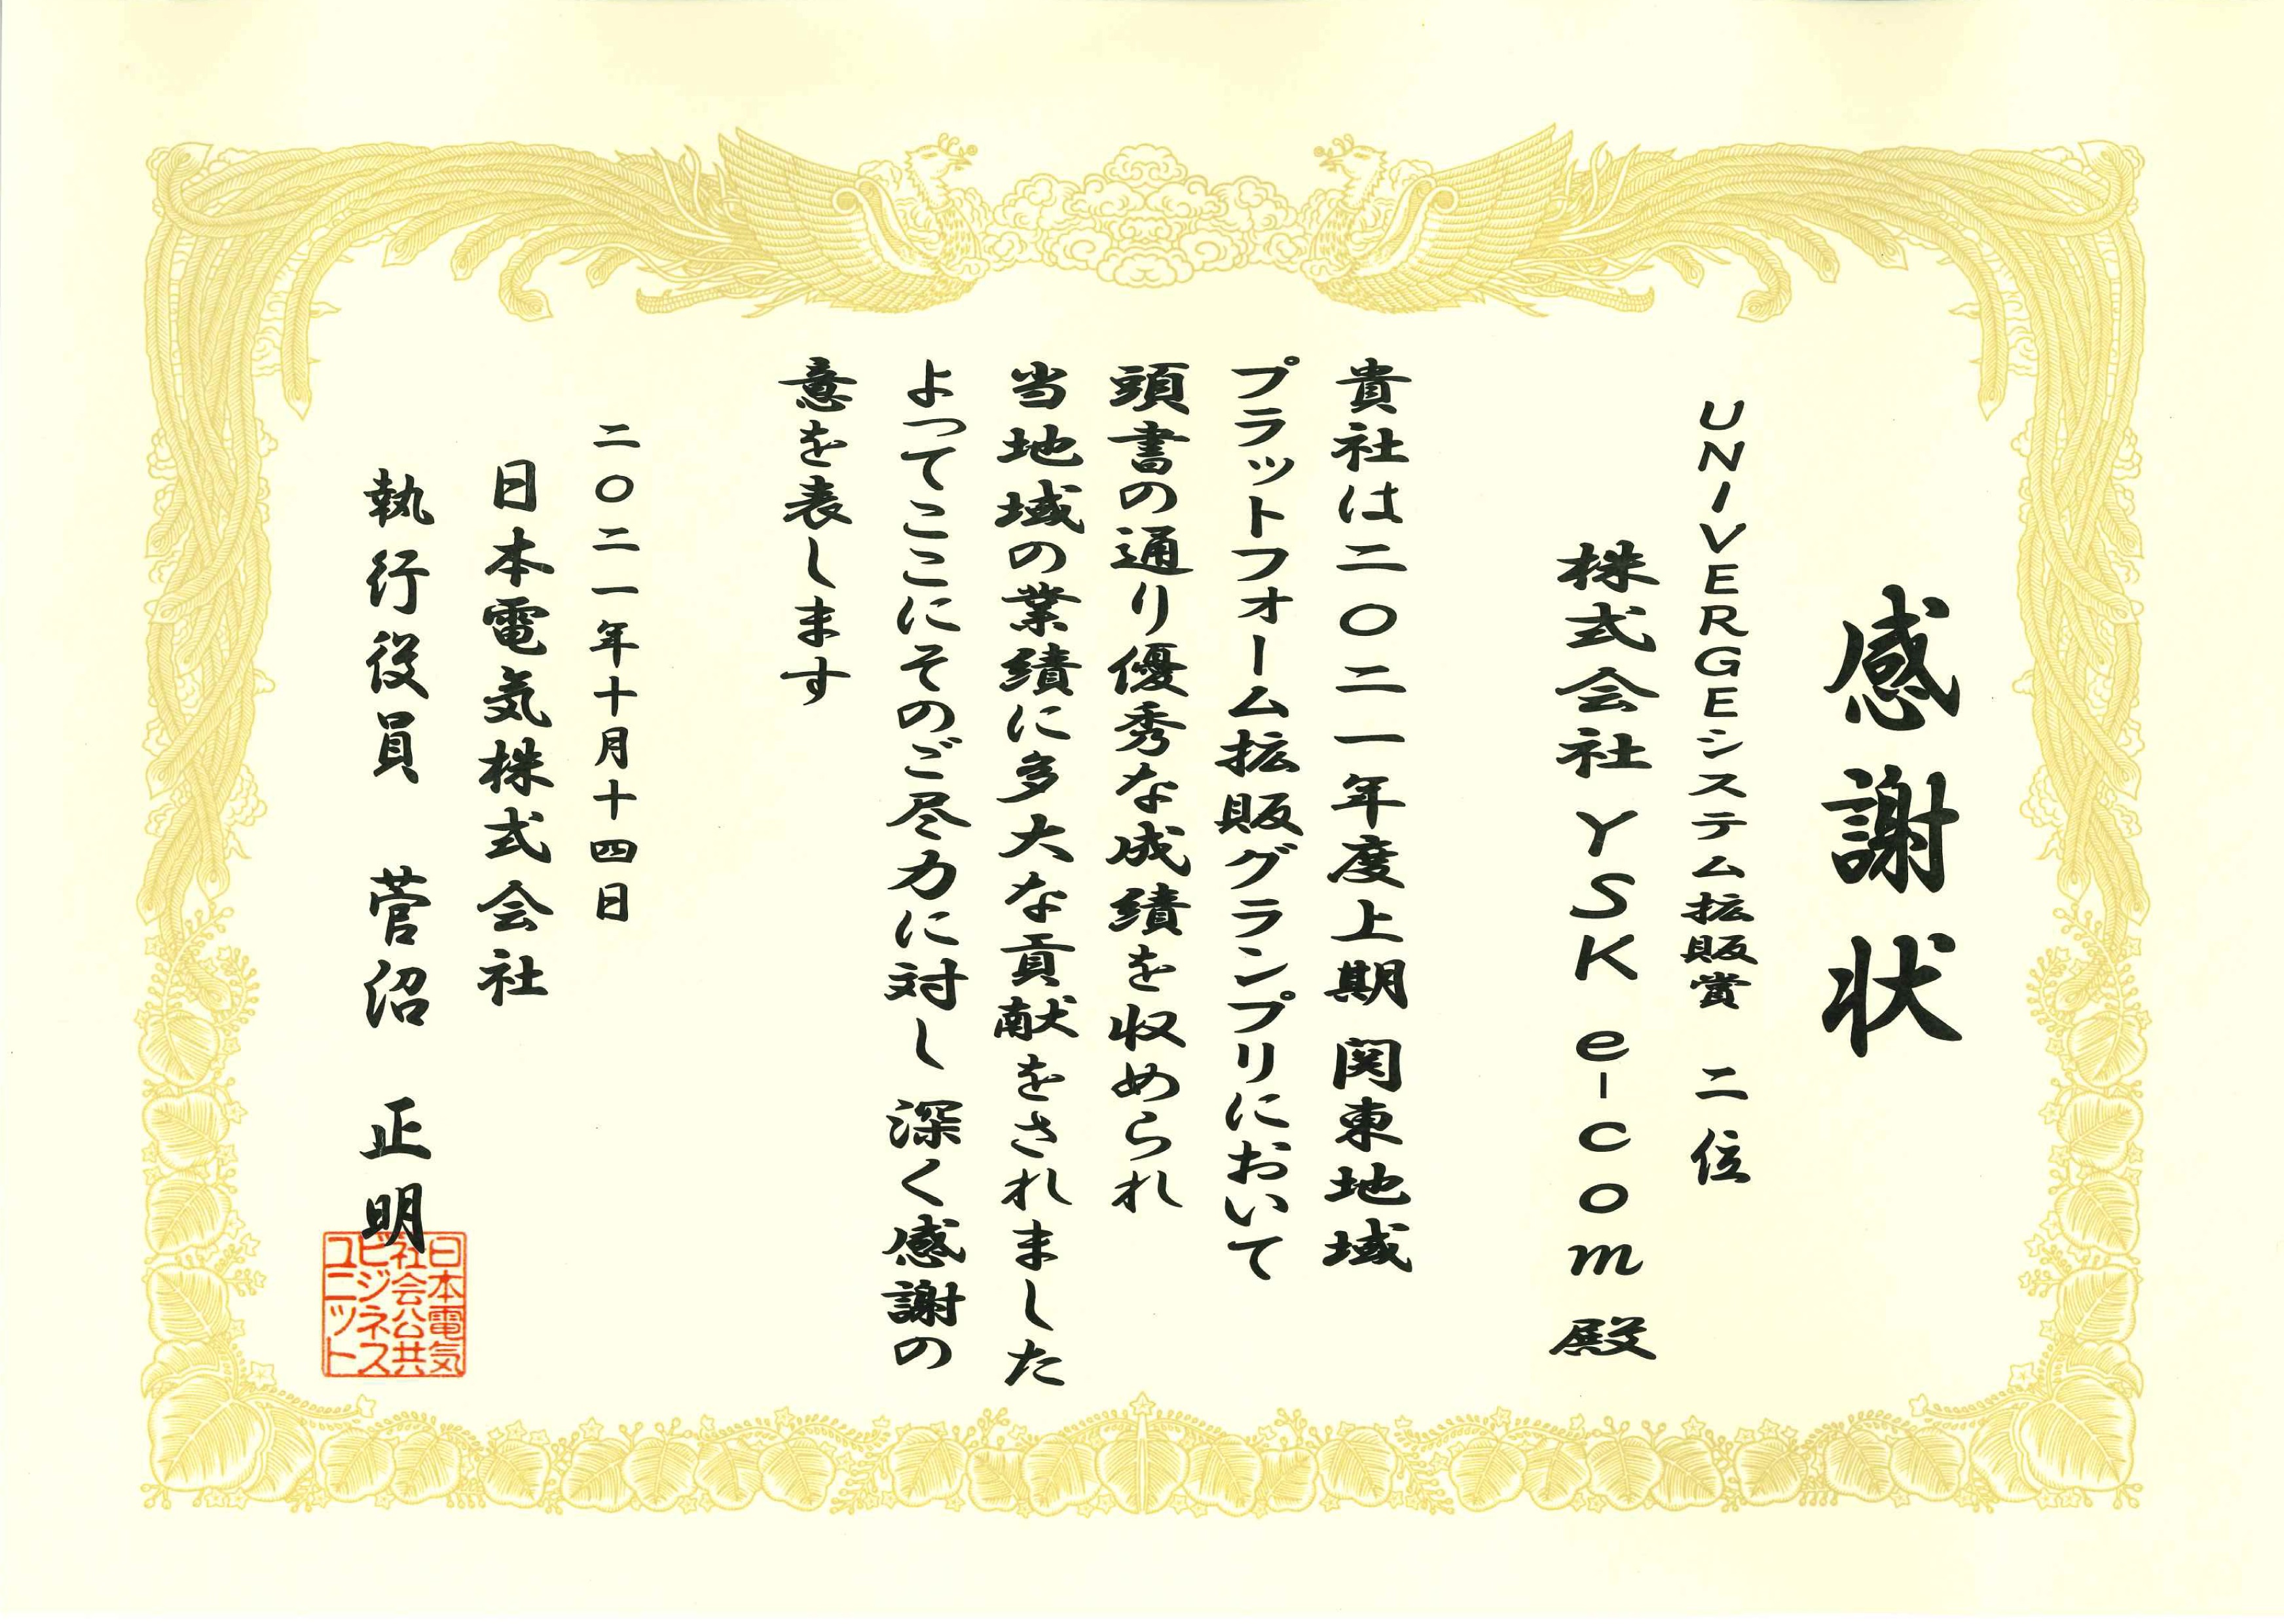 感謝状
UNIVERGEシステム拡販賞 二位
株式会社 YSK e-com 殿
貴社は二〇二一年度上期 関東地域
プラットフォーム拡販グランプリにおいて
頭書の通り優秀な成績を収められ
当地域の業績に多大な貢献をされました
よってここにそのご尽力に対し 深く感謝の
意を表します
二〇二一年十月十四日
日本電気株式会社
執行役員 菅沼 正明
日本電気
社会公共
ビジネス
ユニット